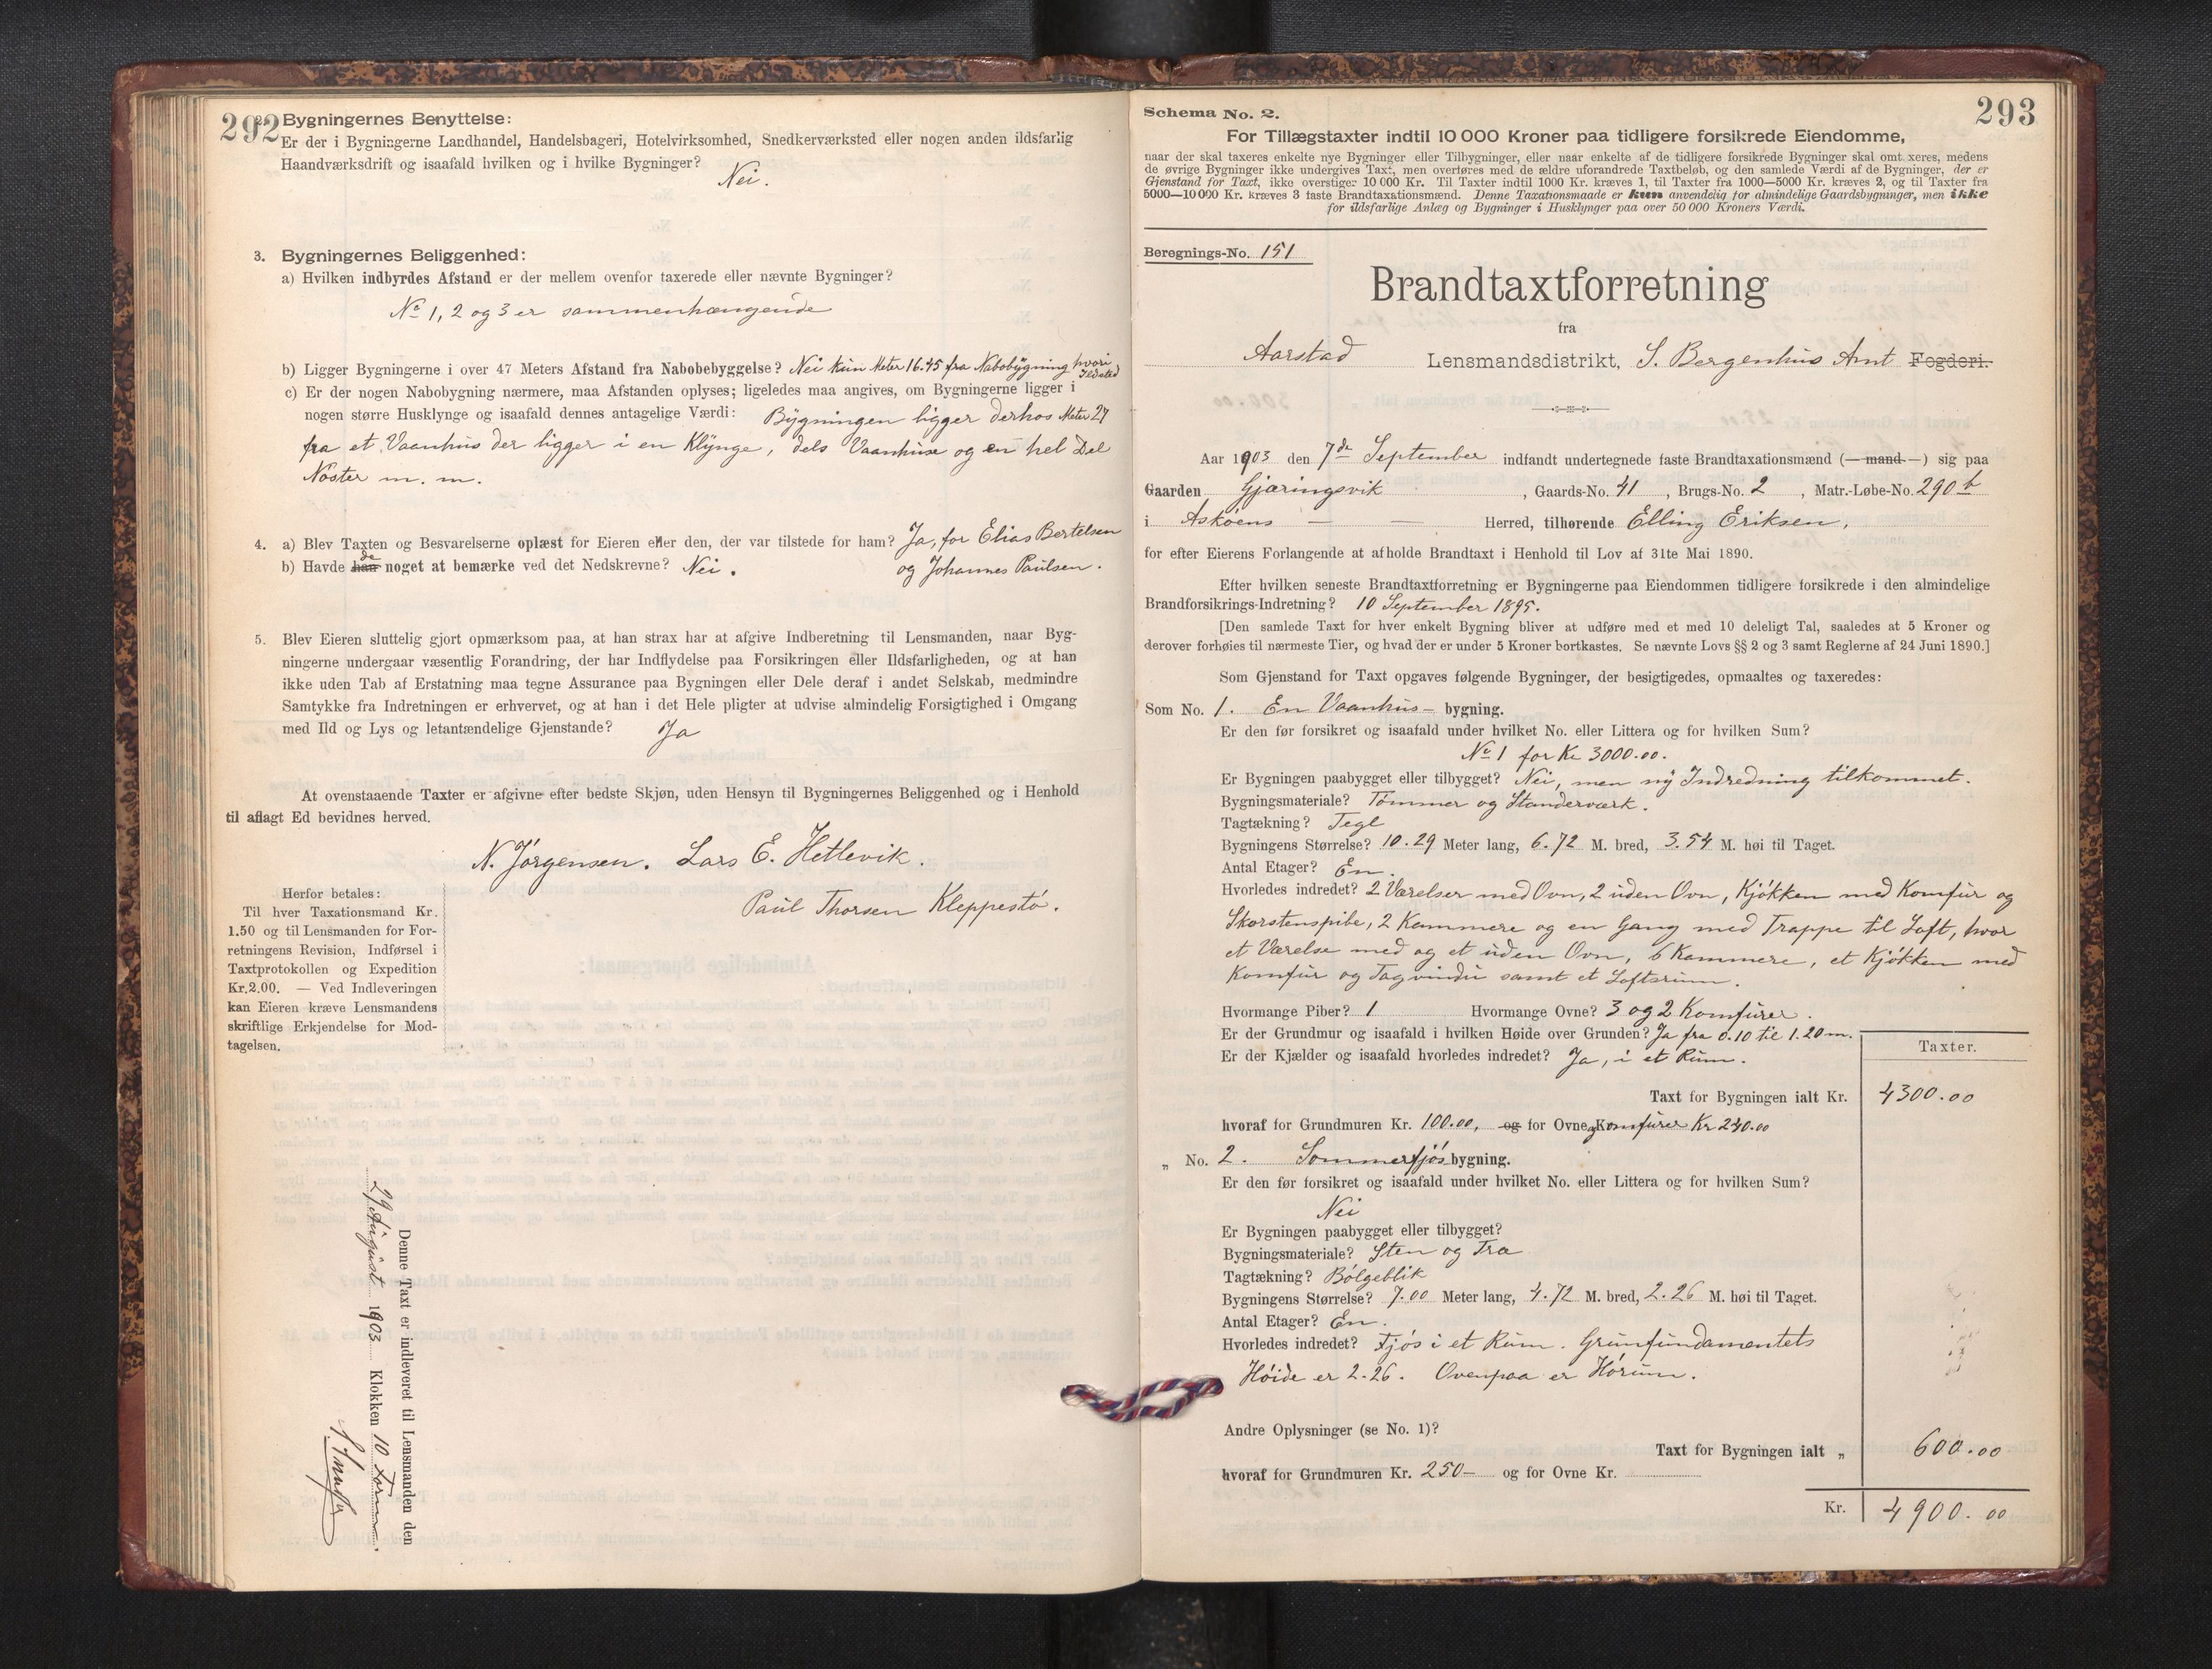 292
Bygningernes Benyttelse:
Er der i Bygningerne Landhandel, Handelsbageri, Hotelvirksomhed, Snedkerværksted eller nogen anden ildsfarlig
Haandværksdrift og isaafald hvilken og i hvilke Bygninger?
Nei.
3. Bygningernes Beliggenhed:
a) Hvilken indbyrdes Afstand er der mellem ovenfor taxerede eller nævnte Bygninger?
No 1, 2 og 3 er sammenhængende
b) Ligger Bygningerne i over 47 Meters Afstand fra Nabobebyggelse? Nei kun Meter 16.45 fra Nabobygning hvori Ildsted
c) Er der nogen Nabobygning nærmere, maa Afstanden oplyses; ligeledes maa angives, om Bygningerne ligger i
nogen større Husklynge og isaafald dennes antagelige Værdi: Bygningen ligger derhos Meter 27
fra et Vaanhus der ligger i en Klynge, dels Vaanhuse og en hel Del
Nöster m. m.
4. a) Blev Taxten og Besvarelserne oplæst for Eieren eller den, der var tilstede for ham? Ja, for Elias Bertelsen
og Johannes Paulsen.
b) Havde han de noget at bemærke ved det Nedskrevne? Nei.
5. Blev Eieren sluttelig gjort opmærksom paa, at han strax har at afgive Indberetning til Lensmanden, naar Byg-
ningerne undergaar væsentlig Forandring, der har Indflydelse paa Forsikringen eller Ildsfarligheden, og at han
ikke uden Tab af Erstatning maa tegne Assurance paa Bygningen eller Dele deraf i andet Selskab, medmindre
Samtykke fra Indretningen er erhvervet, og at han i det Hele pligter at udvise almindelig Forsigtighed i Omgang
med Ild og Lys og letantændelige Gjenstande? Ja
At ovenstaaende Taxter er afgivne efter bedste Skjøn, uden Hensyn til Bygningernes Beliggenhed og i Henhold
til aflagt Ed bevidnes herved.
N. Jörgensen. Lars E. Hetlevik.
Paul Thorsen Kleppestö.
Herfor betales:
Til hver Taxationsmand Kr.
1.50 og til Lensmanden for For-
retningens Revision, Indførsel i
Taxtprotokollen og Expedition
Kr.2.00. — Ved Indleveringen
kan Eieren kræve Lensmandens
skriftlige Erkjendelse for Mod-
tagelsen.
Denne Taxt er indleveret til Lensmanden den
29 August 1903 Klokken 10 Form.
293
Schema No. 2.
For Tillægstaxter indtil 10 000 Kroner paa tidligere forsikrede Eiendomme,
naar der skal taxeres enkelte nye Bygninger eller Tilbygninger, eller naar enkelte af de tidligere forsikrede Bygninger skal omt xeres, medens
de øvrige Bygninger ikke undergives Taxt, men overføres med de ældre uforandrede Taxtbeløb, og den samlede Værdi af de Bygninger, der er
Gjenstand for Taxt, ikke overstiger 10 000 Kr. Til Taxter indtil 1000 Kr. kræves 1, til Taxter fra 1000—5000 Kr. kræves 2, og til Taxter fra
5000—10 000 Kr. kræves 3 faste Brandtaxationsmænd. Denne Taxationsmaade er kun anvendelig for almindelige Gaardsbygninger, men ikke
for ildsfarlige Anlæg og Bygninger i Husklynger paa over 50 000 Kroners Værdi.
Beregnings-No. 151
Brandtaxtforretning
fra
Aarstad Lensmandsdistrikt, S. Bergenhus Amt Fogderi.
Aar 1903 den 7de September indfandt undertegnede faste Brandtaxationsmænd (—mand—) sig paa
Gaarden Gjæringsvik, Gaards-No. 41, Brugs-No. 2, Matr.-Løbe-No. 290 b
i Asköens — — Herred, tilhørende Elling Eriksen,
for efter Eierens Forlangende at afholde Brandtaxt i Henhold til Lov af 31te Mai 1890.
Efter hvilken seneste Brandtaxtforretning er Bygningerne paa Eiendommen tidligere forsikrede i den almindelige
Brandforsikrings-Indretning? 10 September 1895.
[Den samlede Taxt for hver enkelt Bygning bliver at udføre med et med 10 deleligt Tal, saaledes at 5 Kroner og
derover forhøies til nærmeste Tier, og hvad der er under 5 Kroner bortkastes. Se nævnte Lovs §§ 2 og 3 samt Reglerne af 24 Juni 1890.]
Som Gjenstand for Taxt opgaves følgende Bygninger, der besigtigedes, opmaaltes og taxeredes:
Som No. 1. En Vaanhus- bygning.
Er den før forsikret og isaafald under hvilket No. eller Littera og for hvilken Sum?
No 1 for Kr 3000.00.
Er Bygningen paabygget eller tilbygget? Nei, men ny Indredning tilkommet.
Bygningsmateriale? Tömmer og Standerværk.
Tagtækning? Tegl
Bygningens Størrelse? 10.29 Meter lang, 6.72 M. bred, 3.54 M. høi til Taget.
Antal Etager? En.
Hvorledes indredet? 2 Værelser med Ovn, 2 uden Ovn, Kjökken med Komfur og
Skorstenspibe, 2 Kammere og en Gang med Trappe til Loft, hvor
et Værelse med og et uden Ovn, 6 Kammere, et Kjökken med
Komfur og Tagvindu samt et Loftsrum.
Hvormange Piber? 1 Hvormange Ovne? 3 og 2 Komfurer.
Er der Grundmur og isaafald i hvilken Høide over Grunden? Ja fra 0.10 til 1.20 m.
Er der Kjælder og isaafald hvorledes indredet? Ja, i et Rum.
Taxter.
Taxt for Bygningen ialt Kr. 4300.00
hvoraf for Grundmuren Kr. 100.00, og for Ovne og Komfurer Kr 240.00
„ No. 2. Sommerfjös bygning.
Er den før forsikret og isaafald under hvilket No. eller Littera og for hvilken Sum?
Nei
Er Bygningen paabygget eller tilbygget?
Bygningsmateriale? Sten og Træ
Tagtækning? Bölgeblik
Bygningens Størrelse? 7.00 Meter lang, 4.72 M. bred, 2.26 M. høi til Taget.
Antal Etager? En.
Hvorledes indredet? Fjös i et Rum. Grunfundamentets
Höide er 2.26. Ovenpaa er Hörum.
Andre Oplysninger (se No. 1)?
Taxt for Bygningen ialt „ 600.00
hvoraf for Grundmuren Kr. 250— og for Ovne Kr.
Kr. 4900.00